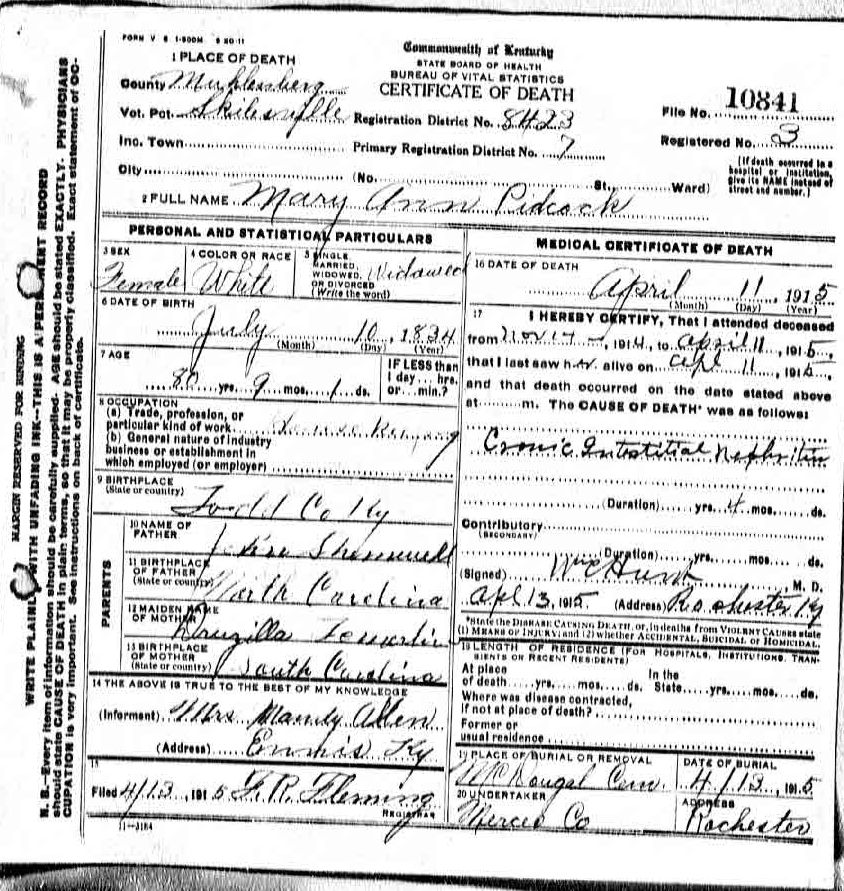 FORM V S 1-500M 9 20-11
Commonwealth of Kentucky
STATE BOARD OF HEALTH
BUREAU OF VITAL STATISTICS
CERTIFICATE OF DEATH
1 PLACE OF DEATH
County Muhlenberg
Vot. Pct. Skilesville
Inc. Town
City
Registration District No. 8423
Primary Registration District No. 7
(No. St., Ward)
File No. 10841
Registered No. 3
(If death occurred in a hospital or institution, give its NAME instead of street and number.)
2 FULL NAME Mary Ann Pidcock
PERSONAL AND STATISTICAL PARTICULARS
3 SEX
Female
4 COLOR OR RACE
White
5 SINGLE, MARRIED, WIDOWED, OR DIVORCED (Write the word)
Widowed
6 DATE OF BIRTH
July 10, 1834
(Month) (Day) (Year)
7 AGE
80 yrs. 9 mos. 1 ds.
IF LESS than 1 day ... hrs. or ... min.?
8 OCCUPATION
(a) Trade, profession, or particular kind of work
(b) General nature of industry business or establishment in which employed (or employer)
9 BIRTHPLACE
(State or country)
Todd Co Ky
PARENTS
10 NAME OF FATHER
11 BIRTHPLACE OF FATHER
(State or country)
North Carolina
12 MAIDEN NAME OF MOTHER
Druzilla
13 BIRTHPLACE OF MOTHER
(State or country)
South Carolina
14 THE ABOVE IS TRUE TO THE BEST OF MY KNOWLEDGE
(Informent) Mrs Mandy Allen
(Address) Ennis Ky
15
Filed 4/13, 1915 F. R. Fleming
REGISTRAR
11-3184
MEDICAL CERTIFICATE OF DEATH
16 DATE OF DEATH
April 11, 1915
(Month) (Day) (Year)
17 I HEREBY CERTIFY, That I attended deceased
from Nov 14, 1914, to April 11, 1915,
that I last saw her alive on Apl 11, 1915,
and that death occurred on the date stated above
at m. The CAUSE OF DEATH* was as follows:
Cronic Interstitial Nephritis
(Duration) yrs. 4 mos. ds.
Contributory
(SECONDARY)
(Duration) yrs. mos. ds.
(Signed) Hunt M. D.
Apl 13, 1915 (Address) Rochester Ky
*State the DISEASE CAUSING DEATH, or, in deaths from VIOLENT CAUSES state
(1) MEANS OF INJURY; and (2) whether ACCIDENTAL, SUICIDAL or HOMICIDAL.
18 LENGTH OF RESIDENCE (FOR HOSPITALS, INSTITUTIONS, TRANSIENTS OR RECENT RESIDENTS)
At place of death yrs. mos. ds. In the State yrs. mos. ds.
Where was disease contracted, if not at place of death?
Former or usual residence
19 PLACE OF BURIAL OR REMOVAL
McDougal Cem
DATE OF BURIAL
4/13, 1915
20 UNDERTAKER
Mercer Co
ADDRESS
Rochester
MARGIN RESERVED FOR BINDING
WRITE PLAINLY WITH UNFADING INK--THIS IS A PERMANENT RECORD
N. B.--Every item of information should be carefully supplied. AGE should be stated EXACTLY. PHYSICIANS
should state CAUSE OF DEATH in plain terms, so that it may be properly classified. Exact statement of OC-
CUPATION is very important. See instructions on back of certificate.